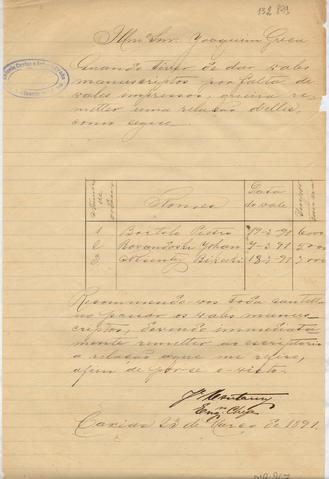 132 891
Illm Snr. Joaquim Greca
Quando tiver de dar vales
manuscriptos por falta de
vales impressos, queira re-
metter uma relação delles,
como segue
Numero
de
Nomes
Data
do vale
1 Bartolo Pietro 7-2-91
2 7-2-91
3 18-2-91
Recommendo vos toda cautella
ao passar os vales manus-
criptos, devendo immediata-
mente remetter ao escriptorio
a relação a que me refiro,
afim de pôr-se o visto.
Engº Chefe
Caxias 23 de Março de 1891.